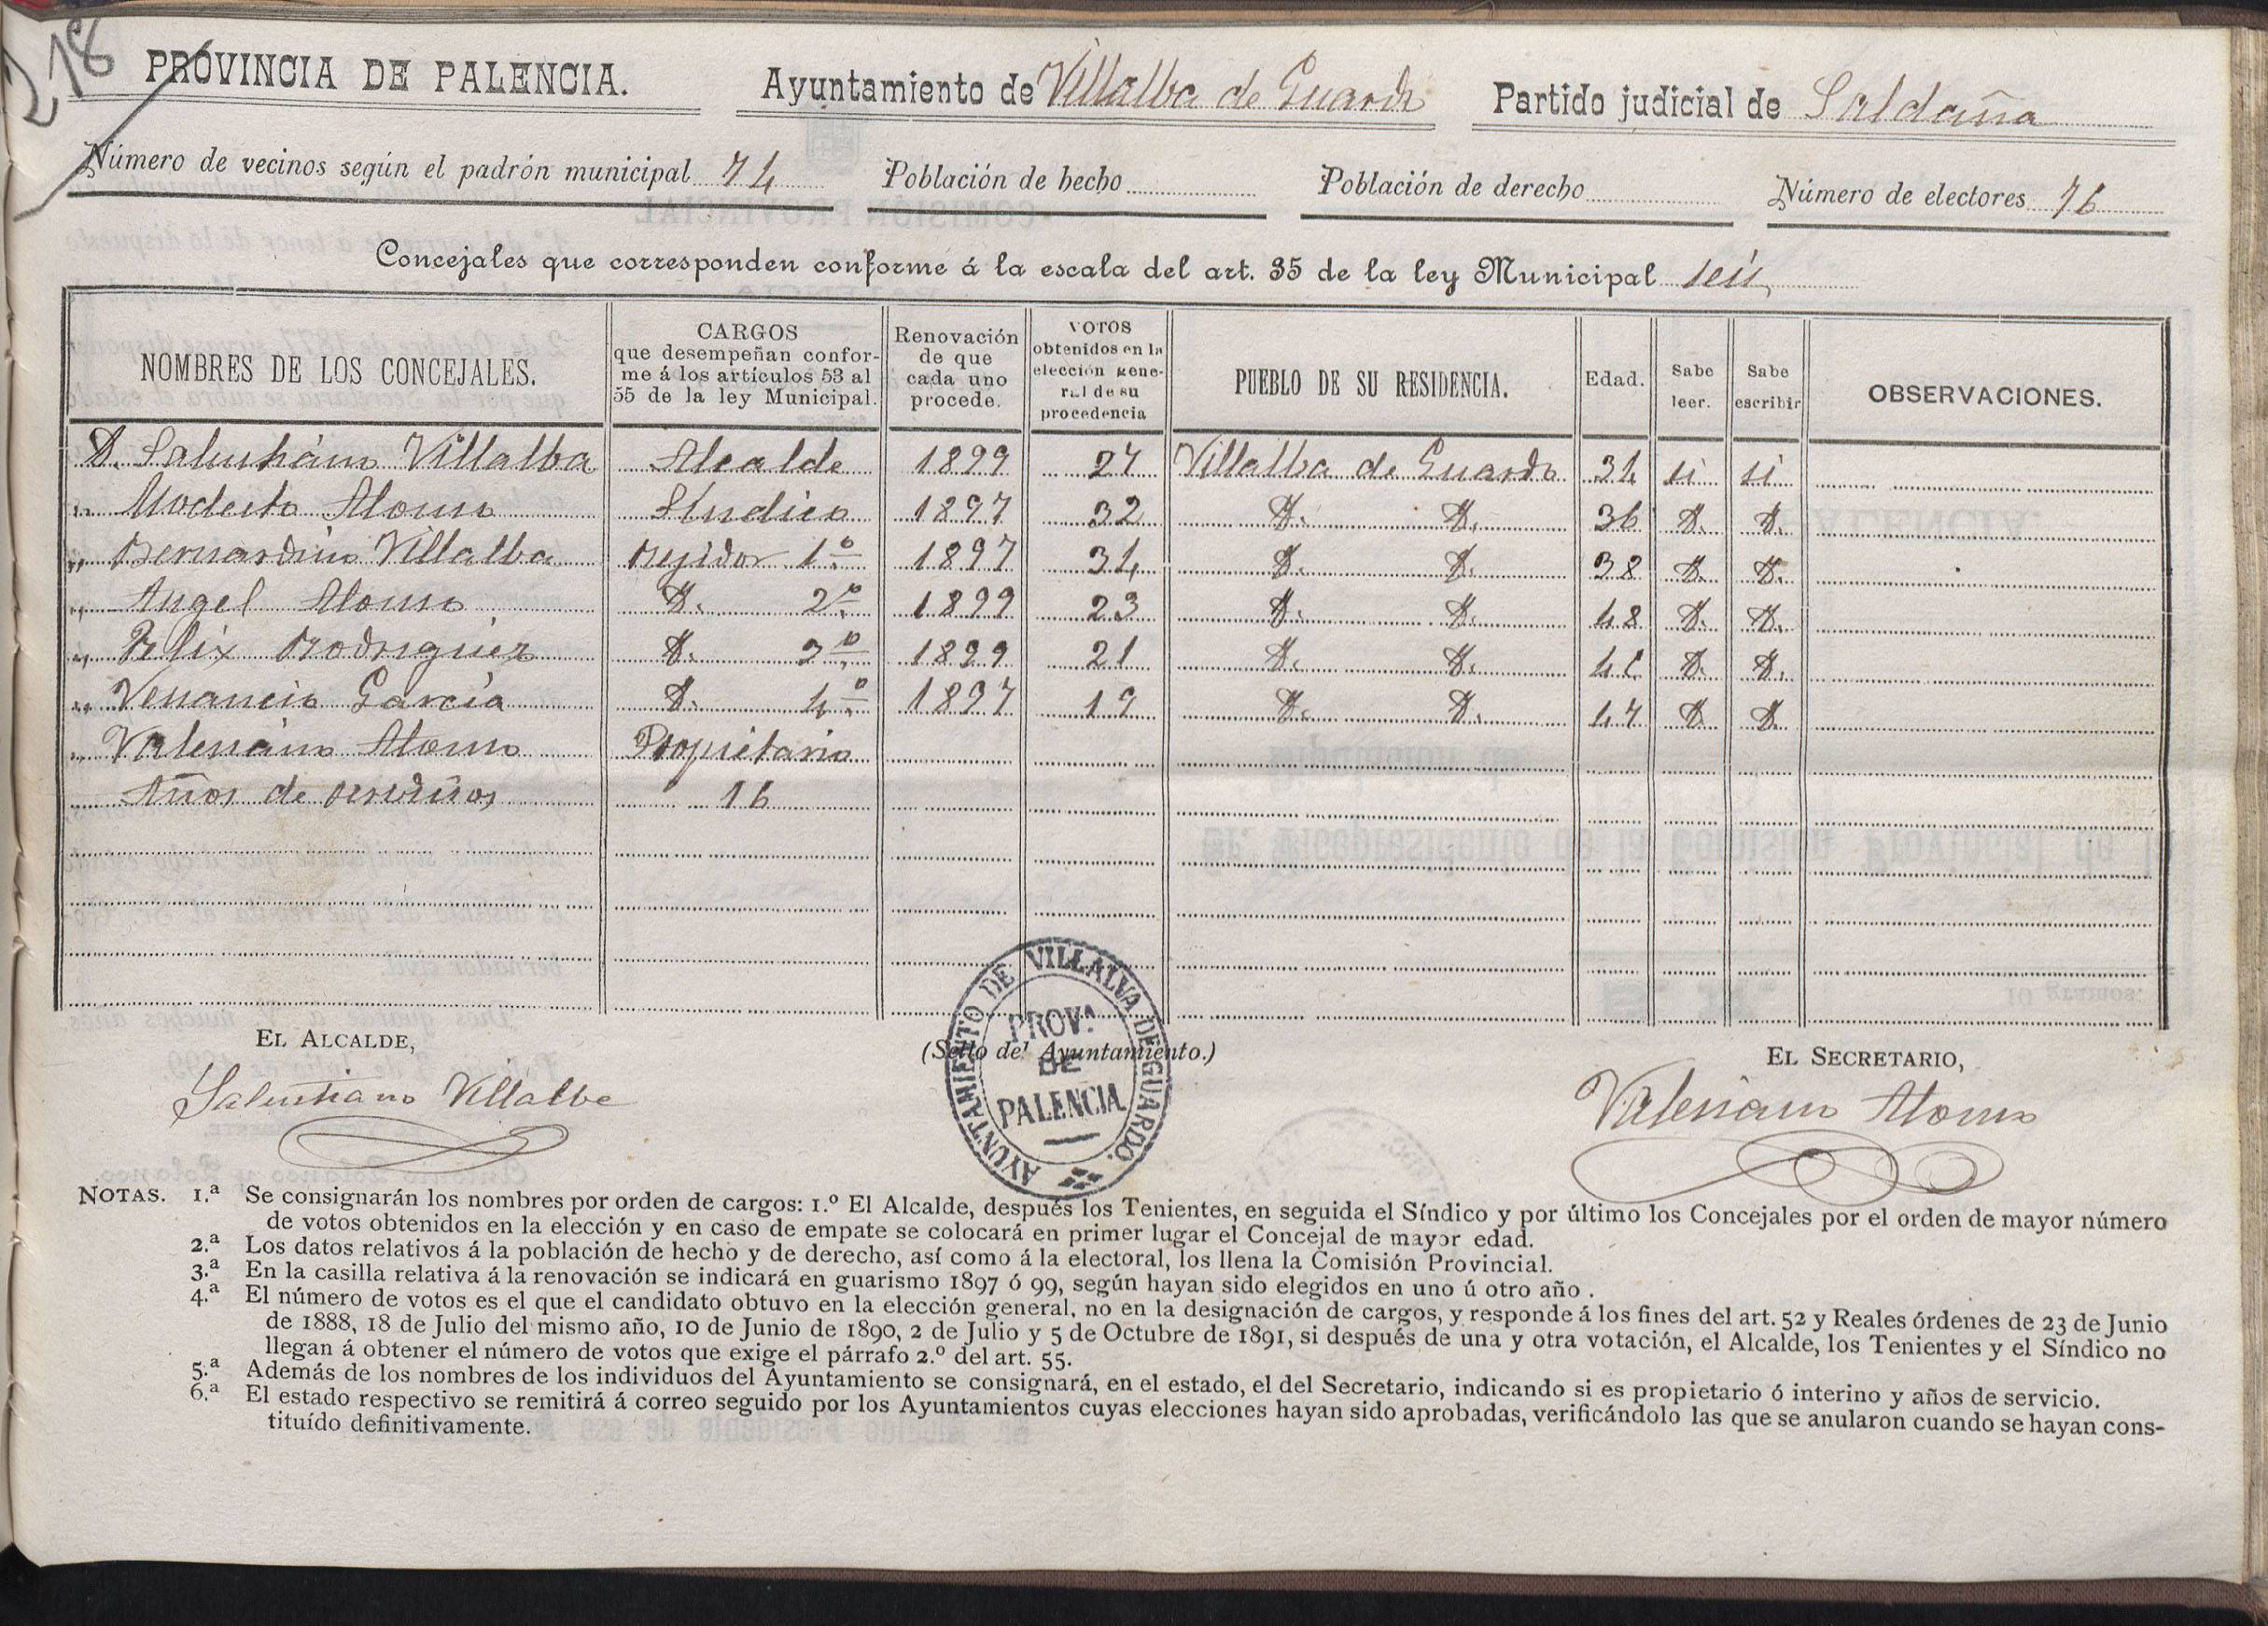 218
PROVINCIA DE PALENCIA. Ayuntamiento de Villalba de Guardo Partido judicial de Saldaña
Número de vecinos según el padrón municipal 74 Población de hecho Población de derecho Número de electores 76
Concejales que corresponden conforme á la escala del art. 35 de la ley Municipal seis
NOMBRES DE LOS CONCEJALES. CARGOS que desempeñan conforme á los artículos 53 al 55 de la ley Municipal. Renovación de que cada uno procede. VOTOS obtenidos en la elección general de su procedencia PUEBLO DE SU RESIDENCIA. Edad. Sabe leer. Sabe escribir OBSERVACIONES.
D. Salustiano Villalba Alcalde 1899 27 Villalba de Guardo 34 si si
" Modesto Alonso Síndico 1897 32 D. D. 36 D. D.
" Bernardino Villalba Rejidor 1º 1897 34 D. D. 38 D. D.
" Angel Alonso D. 2º 1899 23 D. D. 48 D. D.
" Felix Rodriguez D. 3º 1899 21 D. D. D. D.
" Venancio García D. 4º 1897 19 D. D. 47 D. D.
" Valeriano Alonso Propietario
Años de servicios 16
EL ALCALDE, (Sello del Ayuntamiento.) EL SECRETARIO,
Salustiano Villalba Valeriano Alonso
AYUNTAMIENTO DE VILLALVA DE GUARDO.
PROV.ª
DE
PALENCIA
NOTAS. 1.ª Se consignarán los nombres por orden de cargos: 1.º El Alcalde, después los Tenientes, en seguida el Síndico y por último los Concejales por el orden de mayor número
de votos obtenidos en la elección y en caso de empate se colocará en primer lugar el Concejal de mayor edad.
2.ª Los datos relativos á la población de hecho y de derecho, así como á la electoral, los llena la Comisión Provincial.
3.ª En la casilla relativa á la renovación se indicará en guarismo 1897 ó 99, según hayan sido elegidos en uno ú otro año .
4.ª El número de votos es el que el candidato obtuvo en la elección general, no en la designación de cargos, y responde á los fines del art. 52 y Reales órdenes de 23 de Junio
de 1888, 18 de Julio del mismo año, 10 de Junio de 1890, 2 de Julio y 5 de Octubre de 1891, si después de una y otra votación, el Alcalde, los Tenientes y el Síndico no
llegan á obtener el número de votos que exige el párrafo 2.º del art. 55.
5.ª Además de los nombres de los individuos del Ayuntamiento se consignará, en el estado, el del Secretario, indicando si es propietario ó interino y años de servicio.
6.ª El estado respectivo se remitirá á correo seguido por los Ayuntamientos cuyas elecciones hayan sido aprobadas, verificándolo las que se anularon cuando se hayan cons-
tituído definitivamente.